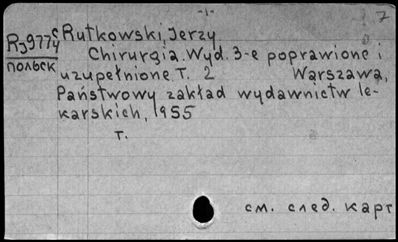 -1-
7
R 3977c Rutkowski, Jerzy
польск
Chirurgia. Wyd. 3-e poprawione i
uzupełnione T. 2 Warszawa,
Państwowy zakład wydawnictw le-
karskich, 1955
т.
см. след. карт